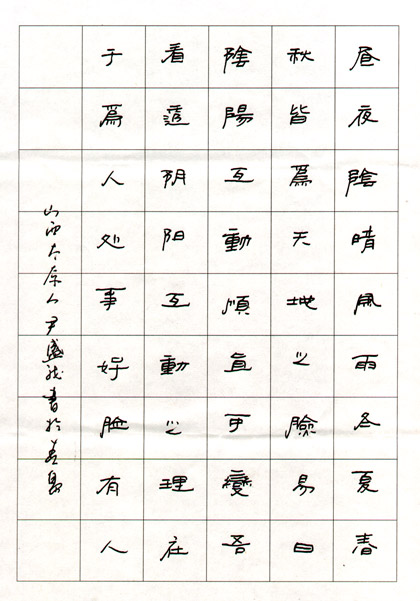 昼夜陰晴風雨冬夏春
秋皆爲天地之臉易曰
陰陽互動順直可變吾
看透阴阳互動之理在
于爲人处事好脸有人
山西太原人尹盛龙書於青島